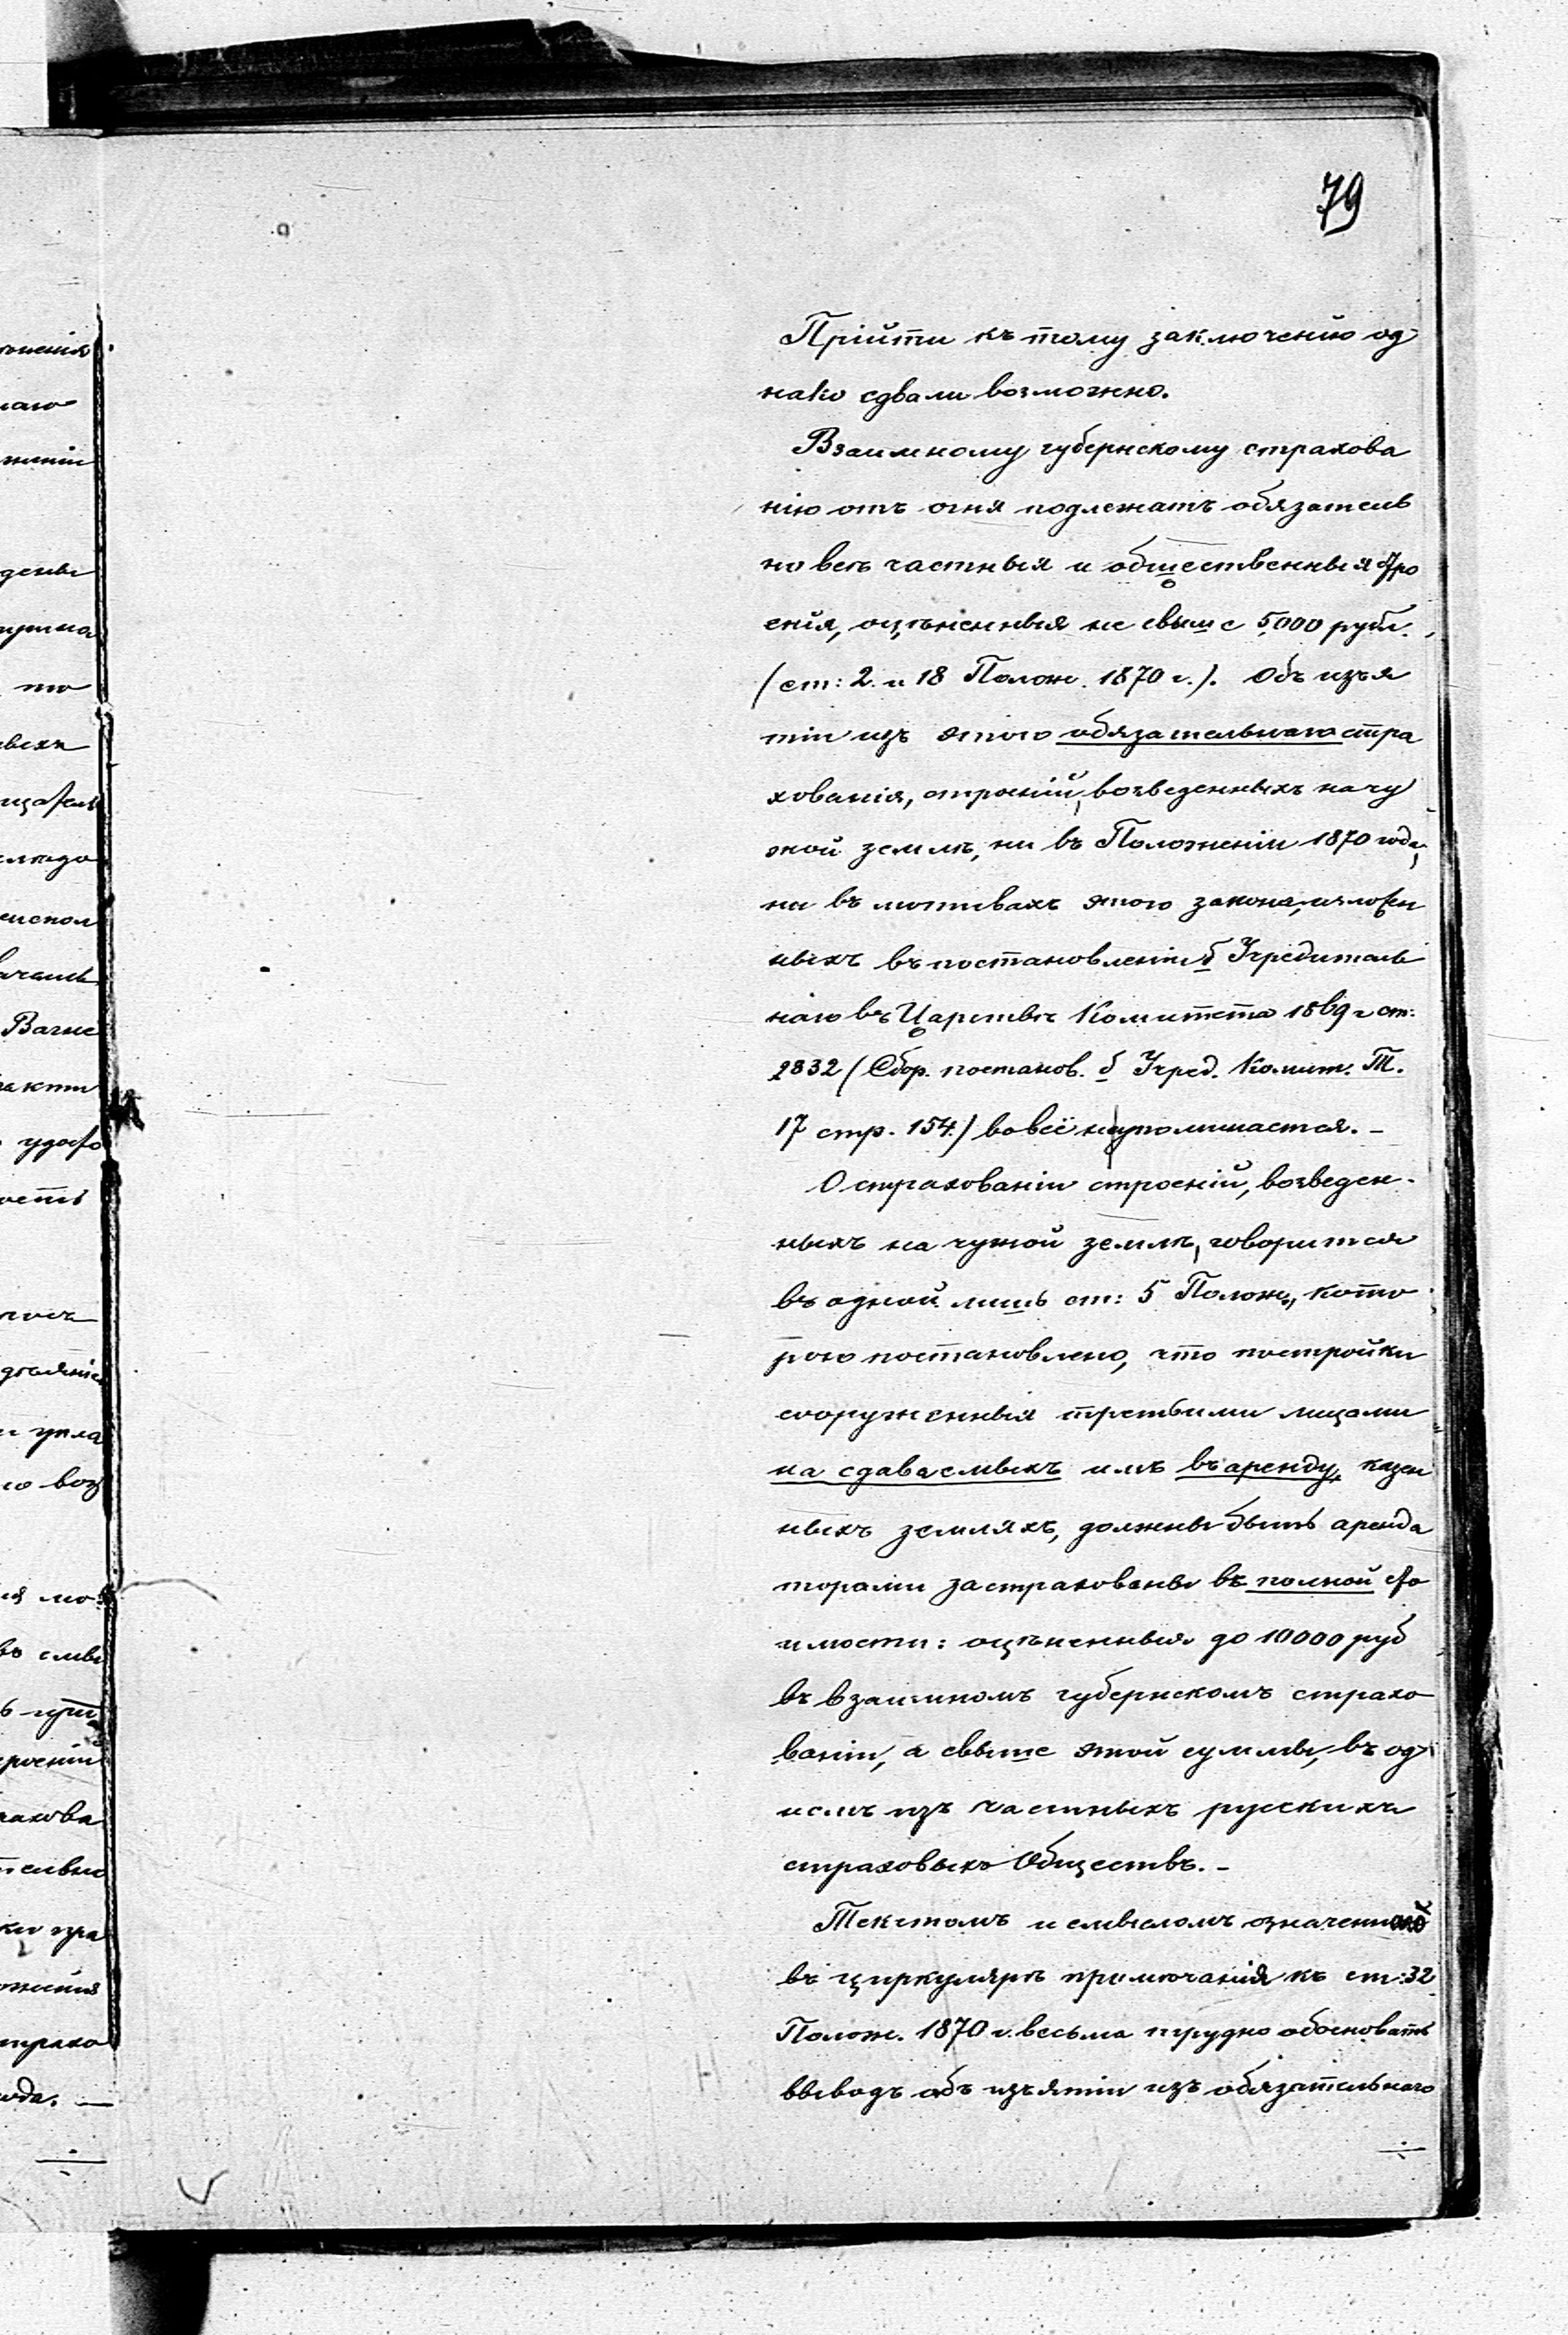 79
Прійти къ тому заключенію од
нако едвали возможно.
Взаимному губернскому страхова
нію отъ огня подлежатъ обязатель
но всѣ частныя и общественныя стро
енія, оцѣненныя не свыше 5000 рубл.
(ст: 2 и 18 Полож. 1870 г.). Объ изъя
тіи изъ этого обязательнаго стра
хованія, строеній, возведенныхъ на чу
жой землѣ, ни въ Положеніи 1870 года,
ни въ мотивахъ этого закона, изложен
ныхъ въ постановленіи б Учредитель
наго въ Царствѣ Комитета 1869 г ст:
2832 (Сбор. постанов. б Учред. Комит. Т.
17 стр. 154.) вовсе не упоминается. –
О страхованіи строеній, возведен-
ныхъ на чужой землѣ, говорится
въ одной лишь ст: 5 Полож., кото
рою постановлено, что постройки
сооруженныя третьими лицами
на сдаваемыхъ имъ въ аренду, казен
ныхъ земляхъ, должны быть аренда
торами застрахованы въ полной сто
имости: оцѣненныя до 10000 руб
въ взаимномъ губернскомъ страхо
ваніи, а свыше этой суммы, въ од
номъ изъ частныхъ русскихъ
страховыхъ Обществъ. –
Текстомъ и смысломъ
въ циркулярѣ примѣчанія къ ст: 32
Полож. 1870 г. весьма трудно обосновать
выводъ объ изъятіи изъ обязательнаго